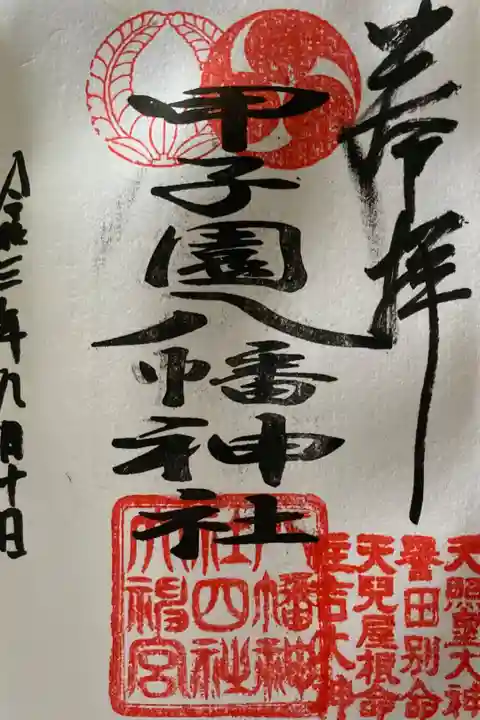 奉拝
甲子園八幡神社
令和三年九月十日
天照皇大神
誉田別命
天兒屋根命
住吉大神
八幡神
社四社
大神宮